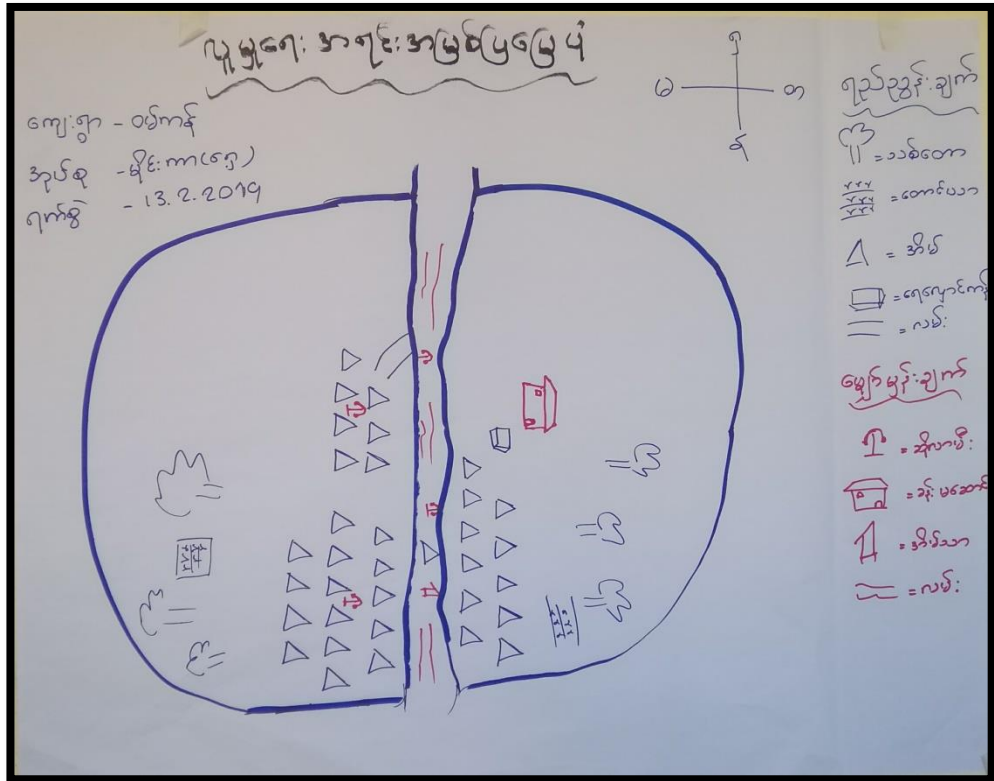 လူမှုရေး အရင်းအမြစ်ပြမြေပုံ
ကျေးရွာ - ဝမ်ကန်
အုပ်စု - မိုင်းကာ(ရှေ့)
ရက်စွဲ - 13.2.2019
မ
တ
ရည်ညွှန်းချက်
= သစ်တော
= တောင်ယာ
= အိမ်
= ရေလှောင်ကန်
= လမ်း
မျှော်မှန်းချက်
= ဆိုလာမီး
= ခန်းမဆောင်
= အိမ်သာ
= လမ်း